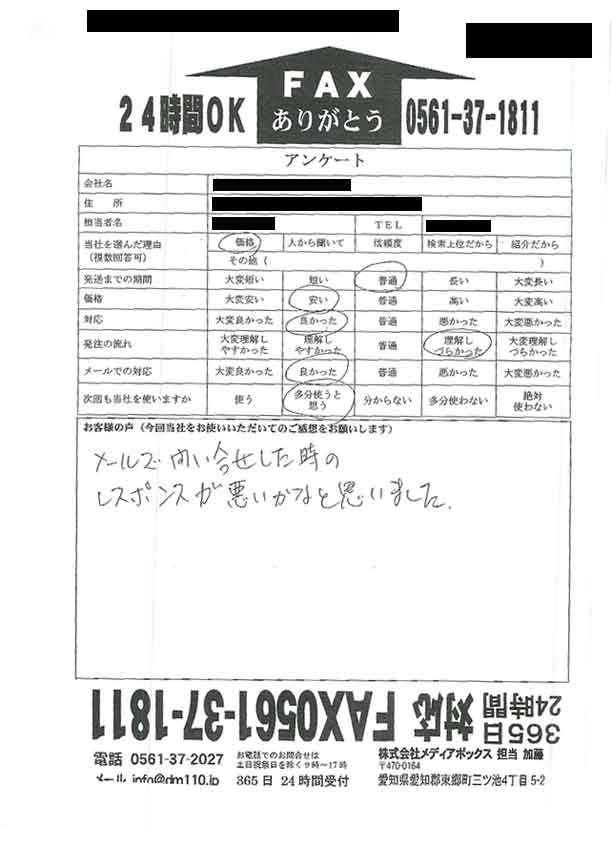 FAX
ありがとう
24時間OK
0561-37-1811
アンケート
会社名
住 所
担当者名 TEL
当社を選んだ理由
(複数回答可)
価格 人から聞いて 信頼度 検索上位だから 紹介だから
その他 ( )
発送までの期間 大変短い 短い 普通 長い 大変長い
価格 大変安い 安い 普通 高い 大変高い
対応 大変良かった 良かった 普通 悪かった 大変悪かった
発注の流れ 大変理解しやすかった 理解しやすかった 普通 理解しづらかった 大変理解しづらかった
メールでの対応 大変良かった 良かった 普通 悪かった 大変悪かった
次回も当社を使いますか 使う 多分使うと思う 分からない 多分使わない 絶対使わない
お客様の声（今回当社をお使いいただいてのご感想をお願いします）
メールで問い合せした時の
レスポンスが悪いかなと思いました.
365日24時間 対応 FAX0561-37-1811
電話 0561-37-2027
メール info@dm110.jp
お電話でのお問合せは
土日祝祭日を除く9～17時
365日 24時間受付
株式会社メディアボックス 担当 加藤
〒470-0164
愛知県愛知郡東郷町三ツ池4丁目5-2